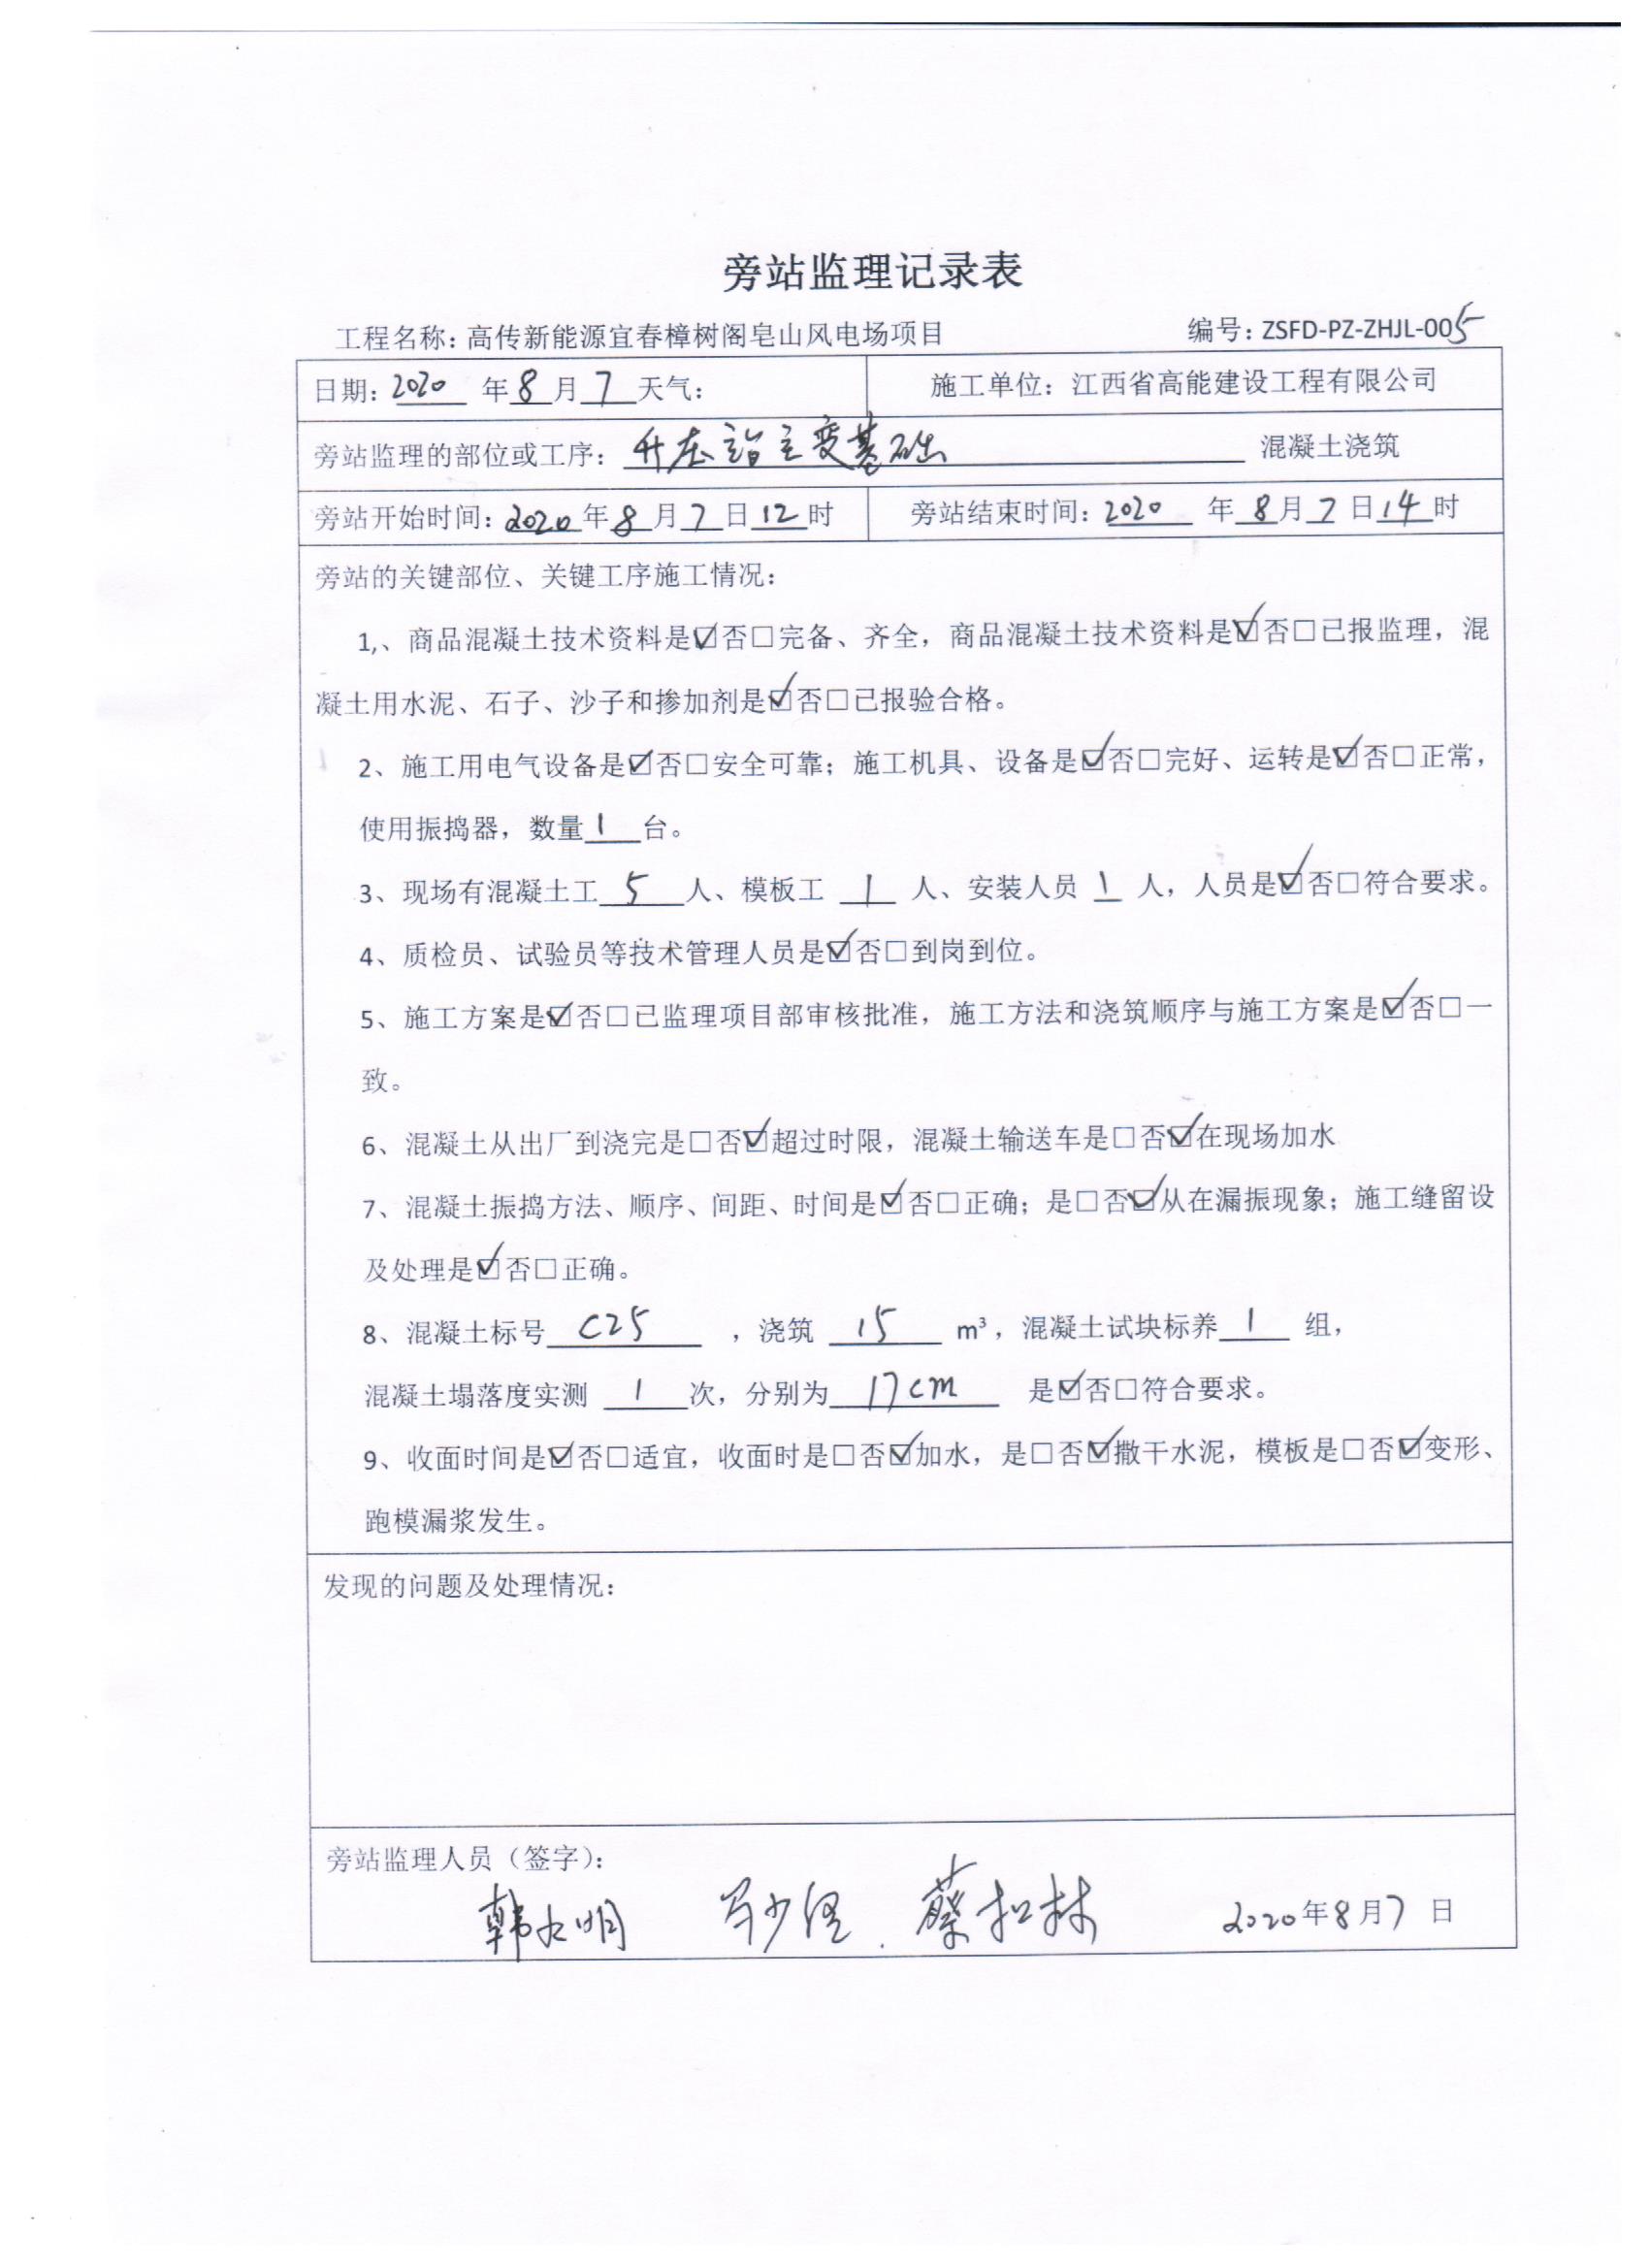 旁站监理记录表
工程名称：高传新能源宜春樟树阁皂山风电场项目 编号：ZSFD-PZ-ZHJL-005
日期：2020 年8月7天气： 施工单位：江西省高能建设工程有限公司
旁站监理的部位或工序：升压站主变基础 混凝土浇筑
旁站开始时间：2020年8月7日12时 旁站结束时间：2020 年8月7日14时
旁站的关键部位、关键工序施工情况：
1,、商品混凝土技术资料是☑否□完备、齐全，商品混凝土技术资料是☑否□已报监理，混
凝土用水泥、石子、沙子和掺加剂是☑否□已报验合格。
2、施工用电气设备是☑否□安全可靠；施工机具、设备是☑否□完好、运转是☑否□正常，
使用振捣器，数量1台。
3、现场有混凝土工5人、模板工 1 人、安装人员 1 人，人员是☑否□符合要求。
4、质检员、试验员等技术管理人员是☑否□到岗到位。
5、施工方案是☑否□已监理项目部审核批准，施工方法和浇筑顺序与施工方案是☑否□一
致。
6、混凝土从出厂到浇完是□否☑超过时限，混凝土输送车是□否☑在现场加水
7、混凝土振捣方法、顺序、间距、时间是☑否□正确；是□否☑从在漏振现象；施工缝留设
及处理是☑否□正确。
8、混凝土标号 C25 ，浇筑 15 m³，混凝土试块标养 1 组，
混凝土塌落度实测 1 次，分别为 17cm 是☑否□符合要求。
9、收面时间是☑否□适宜，收面时是□否☑加水，是□否☑撒干水泥，模板是□否☑变形、
跑模漏浆发生。
发现的问题及处理情况：
旁站监理人员（签字）：
蔡和林 2020年8月7日